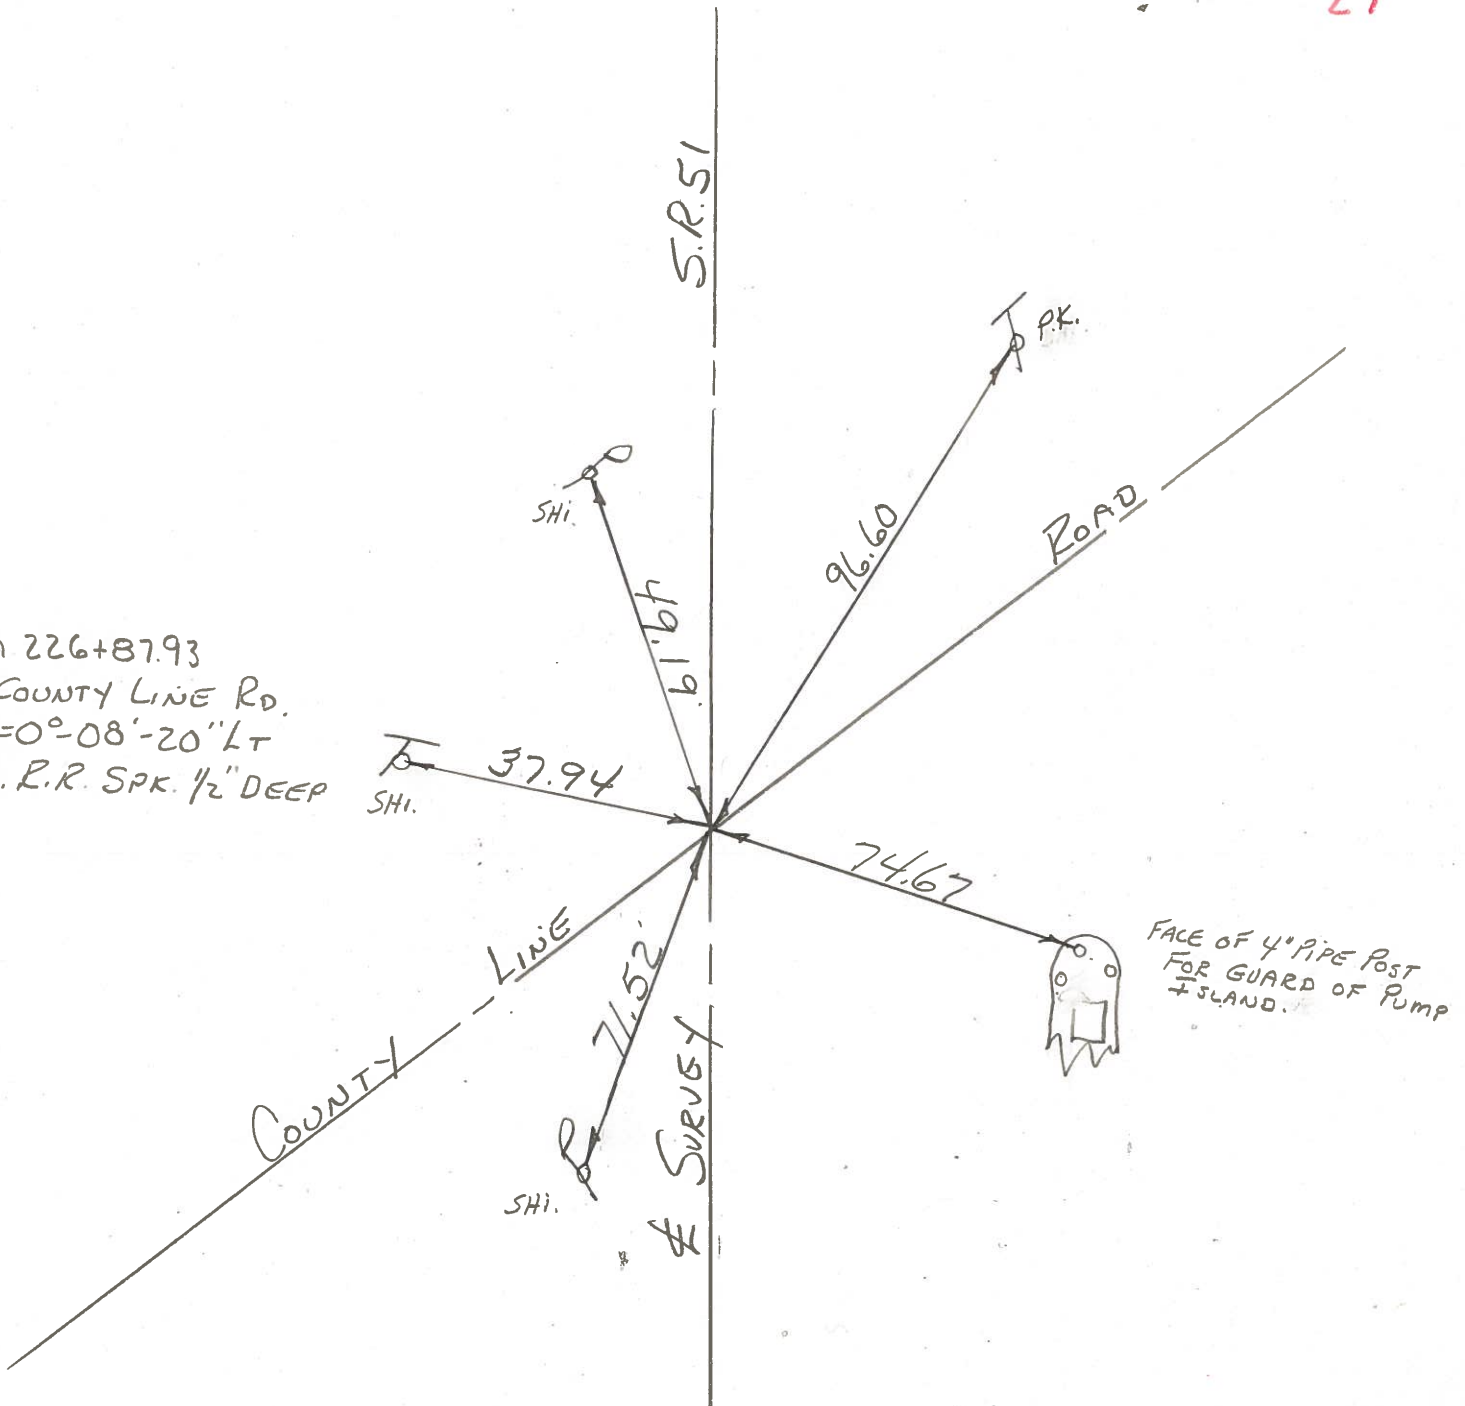 S.R.51
P.K.
SHI.
96.60
ROAD
49.19
226+87.93
COUNTY LINE RD.
=0°-08'-20" LT
. R.R. SPK. 1/2" DEEP
37.94
SHI.
74.67
FACE OF 4" PIPE POST
FOR GUARD OF PUMP
ISLAND.
COUNTY LINE
71.52'
SHI.
℄ SURVEY